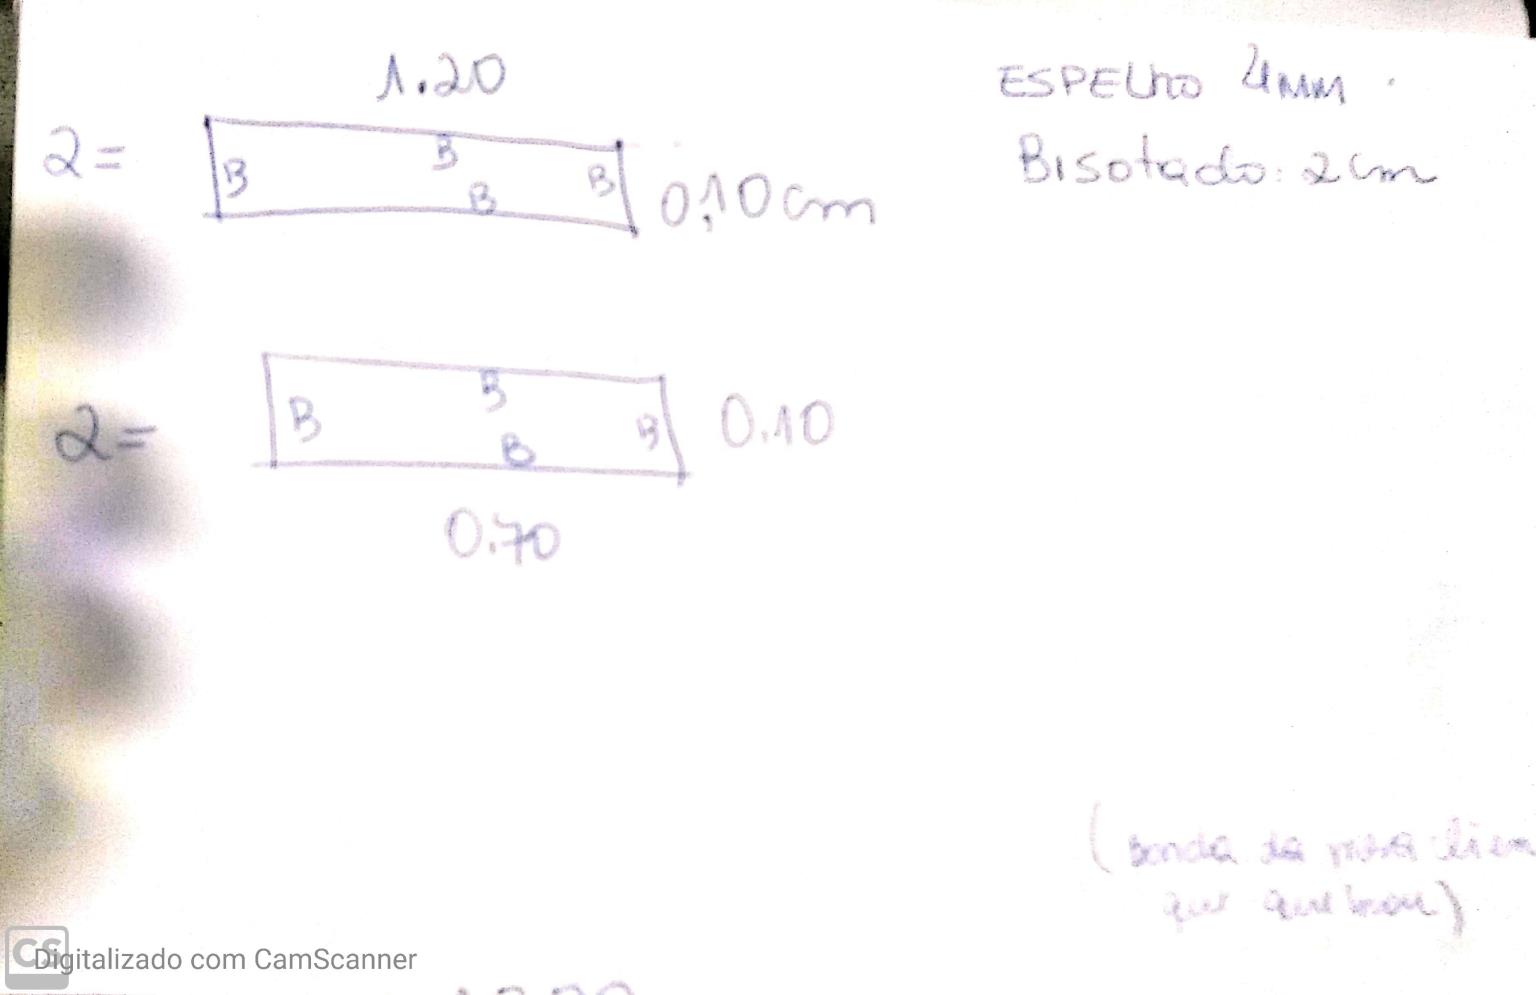 1.20
ESPELHO 4mm.
2=
B
B
B
B
0,10cm
Bisotado: 2cm
2=
B
B
B
B
0.10
0.70
(Borda da
que quebrou)
CS
Digitalizado com CamScanner